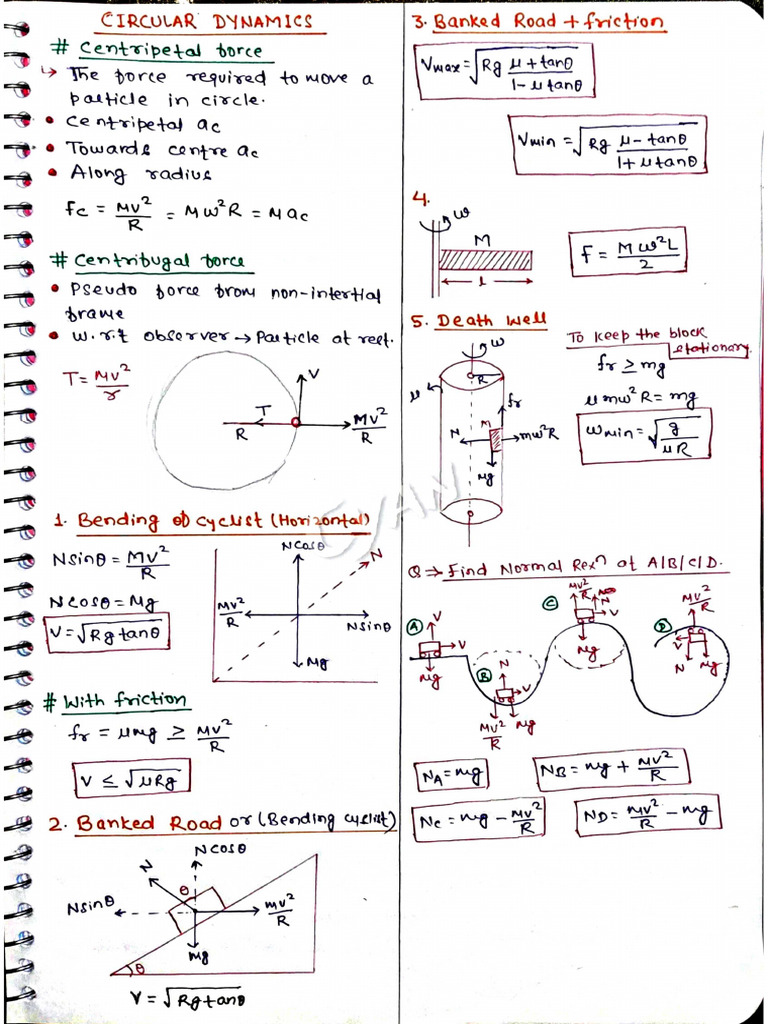 CIRCULAR DYNAMICS
# Centripetal force
↳ The force required to move a
particle in circle.
• Centripetal ac
• Towards centre ac
• Along radius
fc = Mv²/R = Mω²R = Mac
# Centrifugal force
• Pseudo force from non-intertial
frame
• w.r.t observer → Particle at rest.
T = Mv²/r
V
T
R
Mv²/R
1. Bending of cyclist (Horizontal)
Nsinθ = Mv²/R
Ncosθ = Mg
V = √Rgtanθ
Ncosθ
N
Mv²/R
Nsinθ
Mg
# With friction
fr = μmg ≥ Mv²/R
V ≤ √μRg
2. Banked Road or (Bending cyclist)
Ncosθ
N
θ
Nsinθ
mv²/R
Mg
θ
V = √Rgtanθ
3. Banked Road + friction
Vmax = √Rg μ + tanθ / 1 - μtanθ
Vmin = √Rg μ - tanθ / 1 + μtanθ
4.
ω
M
l
F = Mω²L/2
5. Death Well
ω
R
μ
fr
N
M
mω²R
Mg
To keep the block
stationary.
fr ≥ mg
μmω²R = mg
ωmin = √g/μR
CYAN
Q ⇒ Find Normal Rexⁿ at A/B/C/D.
A
V
V
Mg
B
N
V
Mv²/R
Mg
C
Mv²/R
N
V
Mg
D
Mv²/R
V
N
Mg
NA = mg
NB = mg + Mv²/R
Nc = mg - Mv²/R
ND = Mv²/R - mg